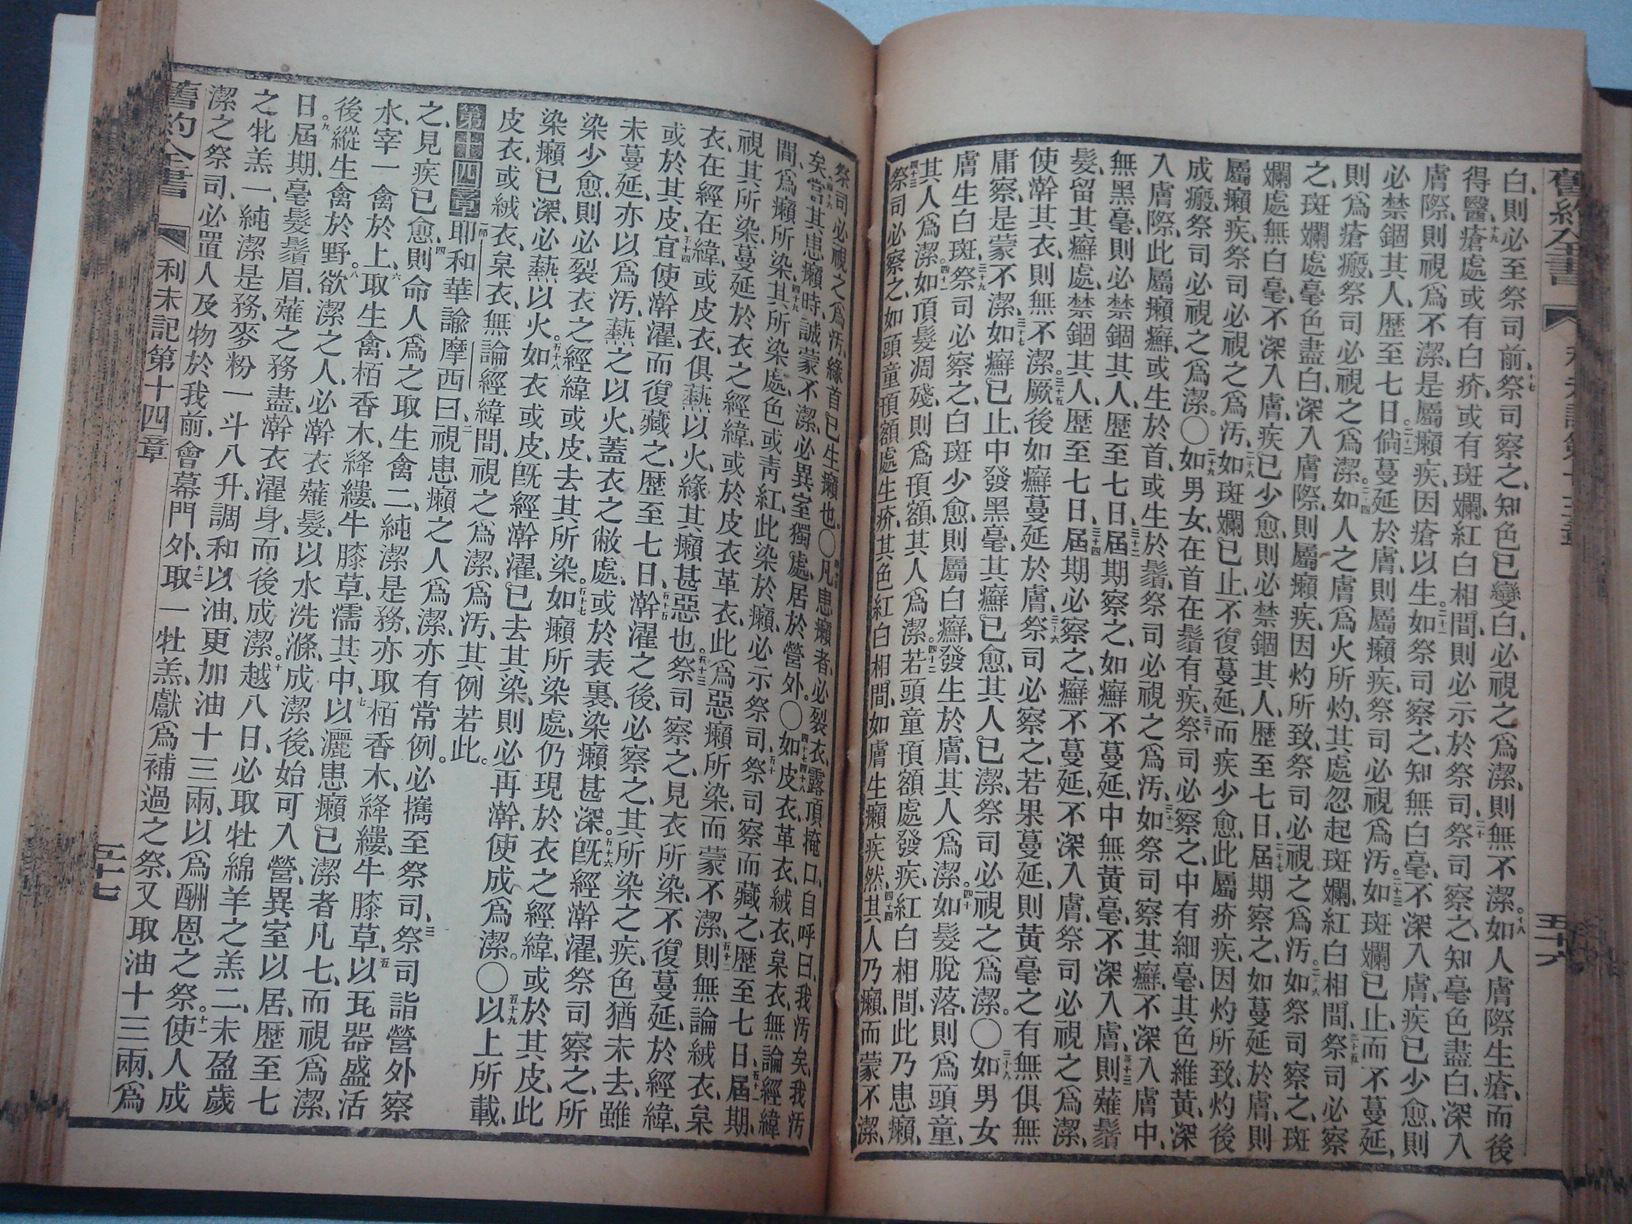 舊約全書 利未記第十三章 五十六
白、則必至祭司前、十七祭司察之、知色已變白、必視之爲潔、則無不潔。十八如人膚際生瘡、而後
得醫、十九瘡處或有白疥、或有斑斕、紅白相間、則必示於祭司、二十祭司察之、知毫色盡白、深入
膚際、則視爲不潔、是屬癩疾、因瘡以生。二十一如祭司察之、知無白毫、不深入膚、疾已少愈、則
必禁錮其人、歷至七日、二十二倘蔓延於膚、則屬癩疾、祭司必視爲汚。二十三如斑斕已止、而不蔓延、
則爲瘡瘢、祭司必視之爲潔。二十四如人之膚、爲火所灼、其處忽起斑斕、紅白相間、二十五祭司必察
之、斑斕處毫色盡白、深入膚際、則屬癩疾、因灼所致、祭司必視之爲汚。二十六如祭司察之、斑
斕處無白毫、不深入膚、疾已少愈、則必禁錮其人、歷至七日、二十七屆期察之、如蔓延於膚、則
屬癩疾、祭司必視之爲汚。二十八如斑斕已止、不復蔓延、而疾少愈、此屬疥疾、因灼所致、灼後
成瘢、祭司必視之爲潔。〇二十九如男女、在首在鬚有疾、三十祭司必察之、中有細毫、其色維黃、深
入膚際、此屬癩癬、或生於首、或生於鬚、祭司必視之爲汚。三十一如祭司察其癬、不深入膚、中
無黑毫、則必禁錮其人、歷至七日、三十二屆期察之、如癬不蔓延、中無黃毫、不深入膚、三十三則薙鬚
髮、留其癬處、禁錮其人、歷至七日、三十四屆期必察之、癬不蔓延、不深入膚、祭司必視之爲潔、
使澣其衣、則無不潔、三十五厥後如癬蔓延於膚、三十六祭司必察之、若果蔓延、則黃毫之有無俱無
庸察、是蒙不潔。三十七如癬已止、中發黑毫、其癬已愈、其人已潔、祭司必視之爲潔。〇三十八如男女
膚生白斑、三十九祭司必察之、白斑少愈、則屬白癬、發生於膚、其人爲潔。四十如髮脫落、則爲頭童、
其人爲潔。四十一如頂髮凋殘、則爲頂額、其人爲潔。四十二若頭童頂額處發疾、紅白相間、此乃患癩、
四十三祭司必察之、如頭童頂額處生疥、其色紅白相間、如膚生癩疾然、四十四其人乃癩、而蒙不潔、
祭司必視之爲汚、緣首已生癩也。〇四十五凡患癩者、必裂衣、露頂掩口、自呼曰、我汚矣、我汚
矣、四十六當其患癩時、誠蒙不潔、必異室獨處、居於營外。〇四十七如皮衣革衣絨衣枲衣、四十八無論經緯
間、爲癩所染、四十九其所染處、色或靑紅、此染於癩、必示祭司、五十祭司察而藏之、歷至七日、五十一屆期、
視其所染、蔓延於衣之經緯、或於皮衣革衣、此爲惡癩所染、而蒙不潔、五十二則無論絨衣枲
衣、在經在緯、或皮衣、俱爇以火、緣其癩甚惡也。五十三祭司察之、見衣所染不復蔓延、於經緯、
或於其皮、五十四宜使澣濯、而復藏之、歷至七日、五十五澣濯之後、必察之、其所染之疾、色猶未去、雖
未蔓延、亦以爲汚、爇之以火、蓋衣之敝處、或於表裏、染癩甚深。五十六旣經澣濯、祭司察之、所
染少愈、則必裂衣之經緯、或皮、去其所染。五十七如癩所染處、仍現於衣之經緯、或於其皮、此
染癩已深、必爇以火。五十八如衣或皮、旣經澣濯、已去其染、則必再澣、使成爲潔。〇五十九以上所載、
皮衣、或絨衣枲衣、無論經緯間、視之爲潔、爲汚、其例若此。
第十四章 一耶和華諭摩西曰、二視患癩之人爲潔、亦有常例。必攜至祭司、三祭司詣營外察
之、見疾已愈、四則命人爲之取生禽二、純潔是務、亦取栢香木、絳縷、牛膝草、五以瓦器盛活
水、宰一禽於上、六取生禽、栢香木、絳縷、牛膝草、濡其中、七以灑患癩已潔者凡七、而視爲潔、
後縱生禽於野。八欲潔之人、必澣衣薙髮、以水洗滌、成潔後、始可入營、異室以居、歷至七
日。九屆期、毫髮鬚眉、薙之務盡、澣衣濯身、而後成潔。十越八日、必取牡綿羊之羔二、未盈歲
之牝羔一、純潔是務、麥粉一斗八升、調和以油、更加油十三兩、以爲酬恩之祭。十一使人成
潔之祭司、必置人及物於我前、會幕門外、十二取一牡羔、獻爲補過之祭、又取油十三兩、爲
舊約全書 利未記第十四章 五十七